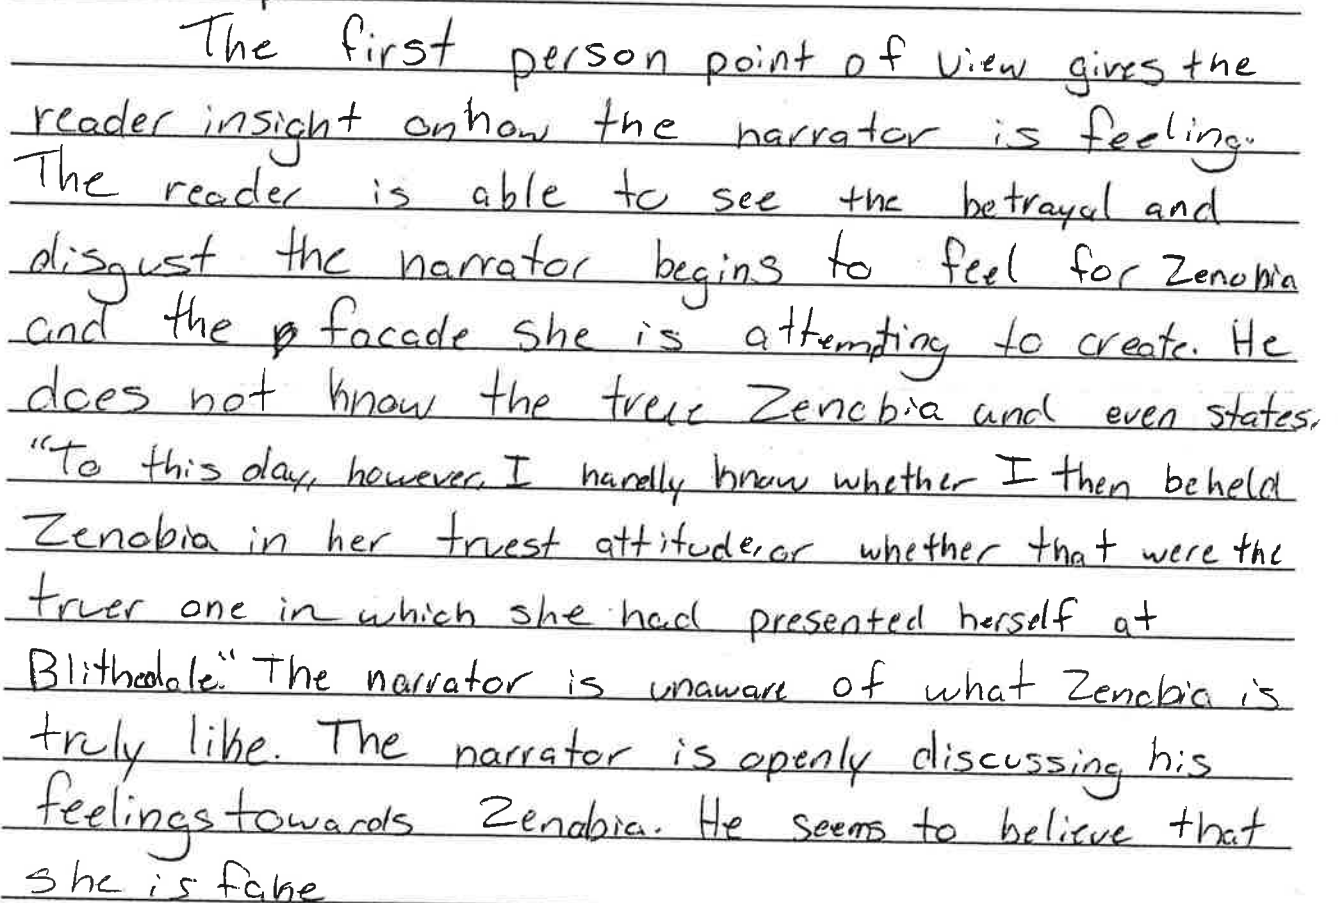 The first person point of view gives the
reader insight on how the narrator is feeling.
The reader is able to see the betrayal and
disgust the narrator begins to feel for Zenobia
and the facade she is attempting to create. He
does not know the true Zenobia and even states,
"To this day, however, I hardly know whether I then beheld
Zenobia in her truest attitude, or whether that were the
truer one in which she had presented herself at
Blithedale." The narrator is unaware of what Zenobia is
truly like. The narrator is openly discussing his
feelings towards Zenobia. He seems to believe that
she is fake